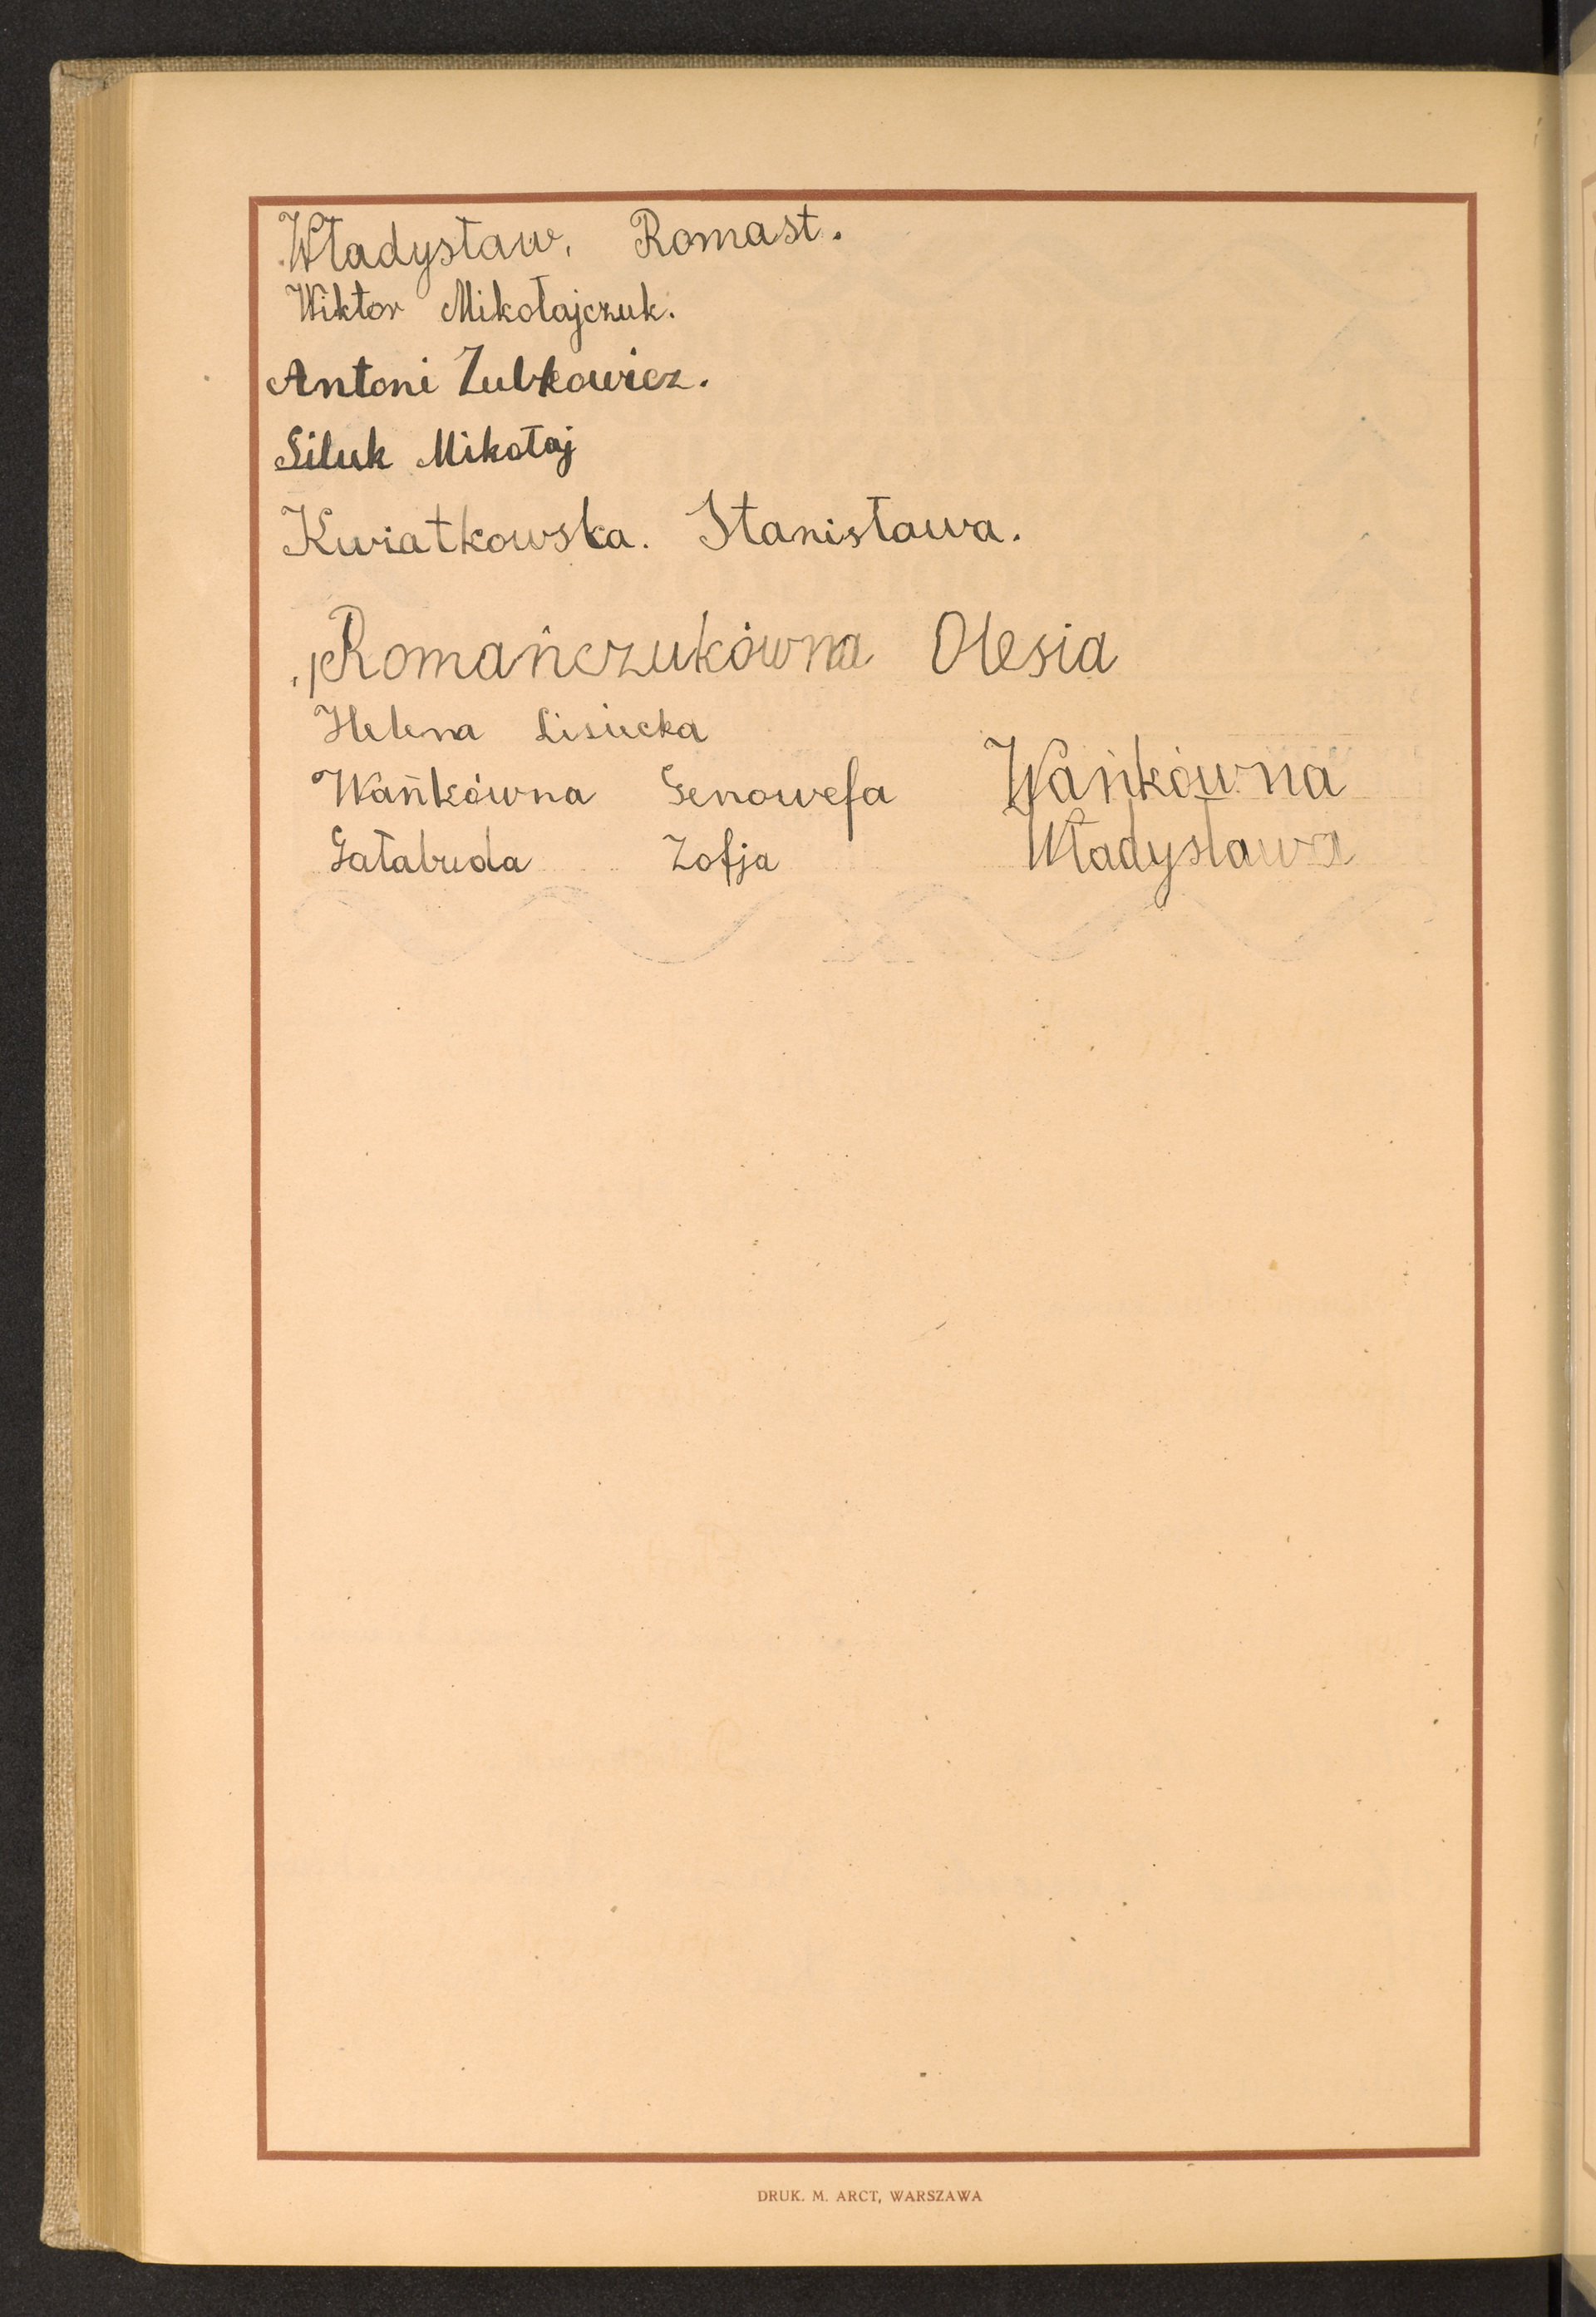 Władysław, Romast.
Wiktor Mikołajczuk.
Antoni Zubkowicz.
Siluk Mikołaj
Kwiatkowska. Stanisława.
Romańczukówna Olesia
Helena Lisiecka
Wańkówna Genowefa
Gałabuda Zofja
Wańkówna
Władysława
DRUK. M. ARCT, WARSZAWA